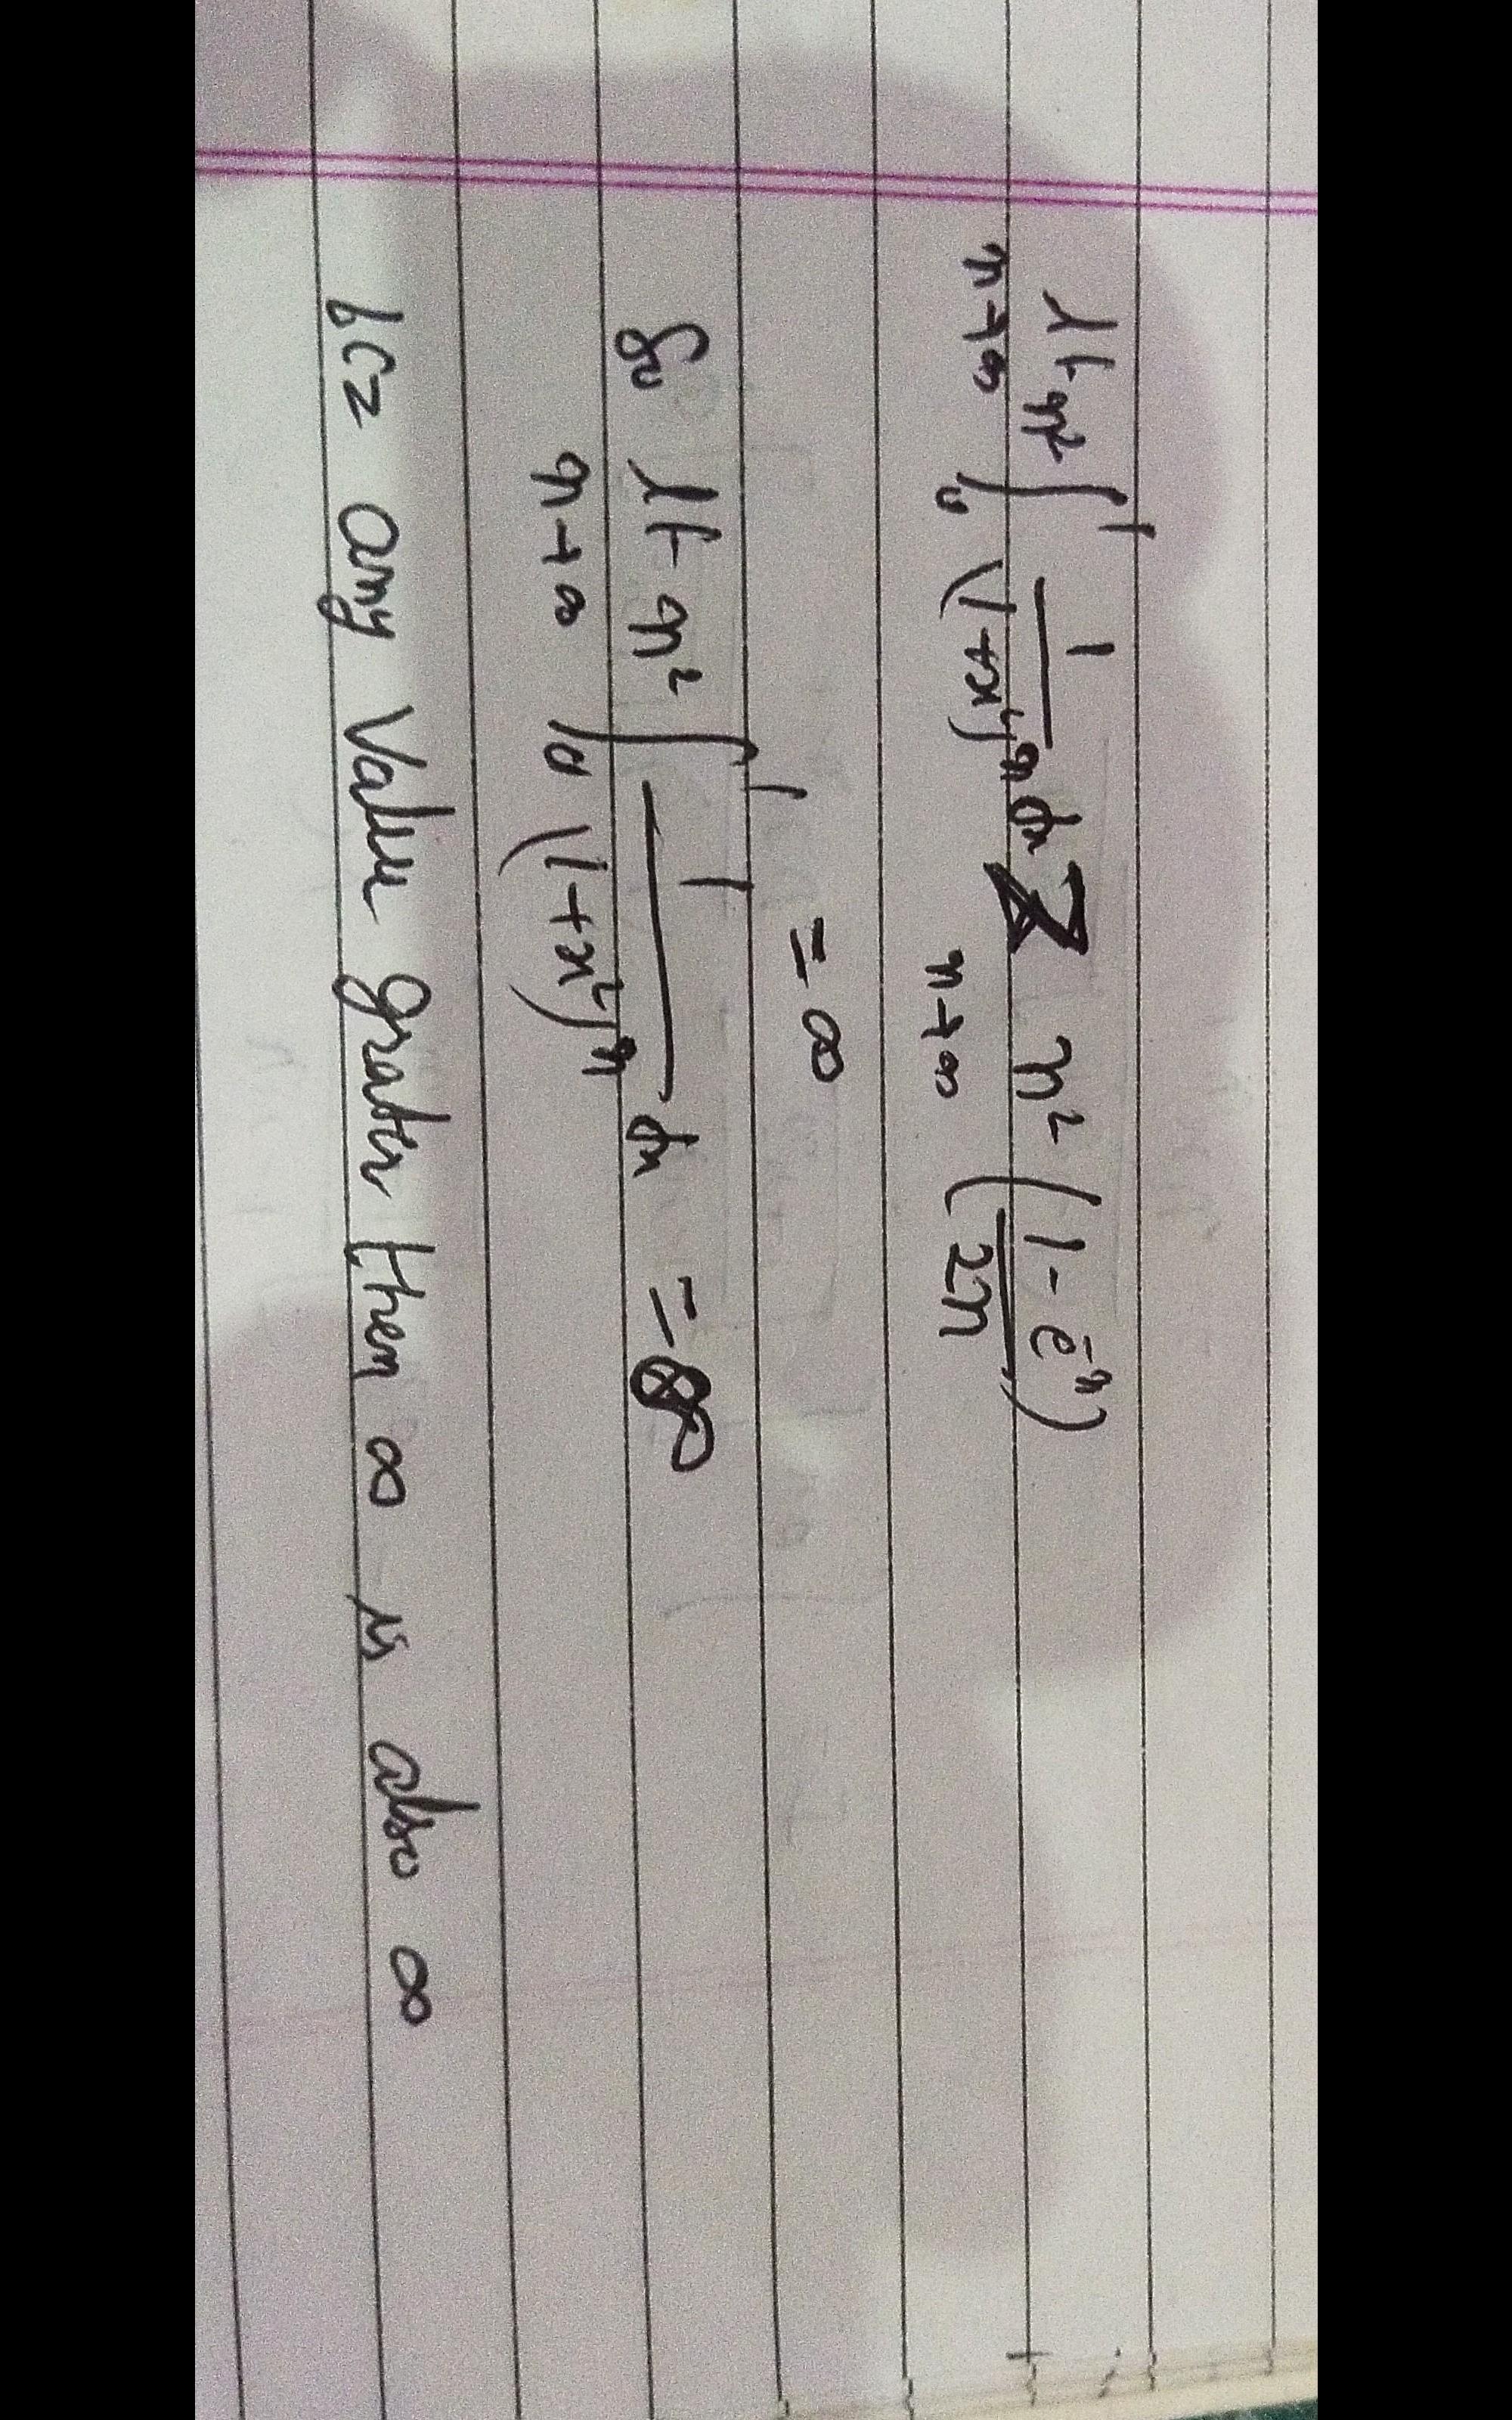 lt n² ∫₀¹ 1/(1+x²)ⁿ dx ≥ n² (1-e⁻ⁿ/2n)
n→∞ n→∞
= ∞
So lt n² ∫₀¹ 1/(1+x²)ⁿ dx = ∞
n→∞
bcz any Value greater then ∞ is also ∞